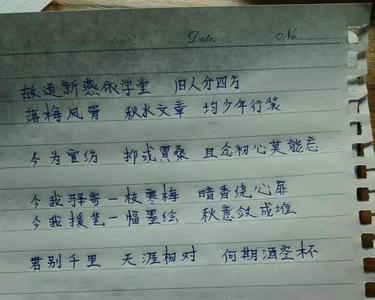 Date: No.
故道新燕依学堂 旧人分四方
落梅风骨 秋水文章 均少年行装
今为宣纺 抑或贾桑 且念初心莫能忘
今我驿寄一枝寒梅 暗香绕心扉
今我援笔一幅墨绘 秋意敛成堆
君别千里 天涯相对 何期酒空杯